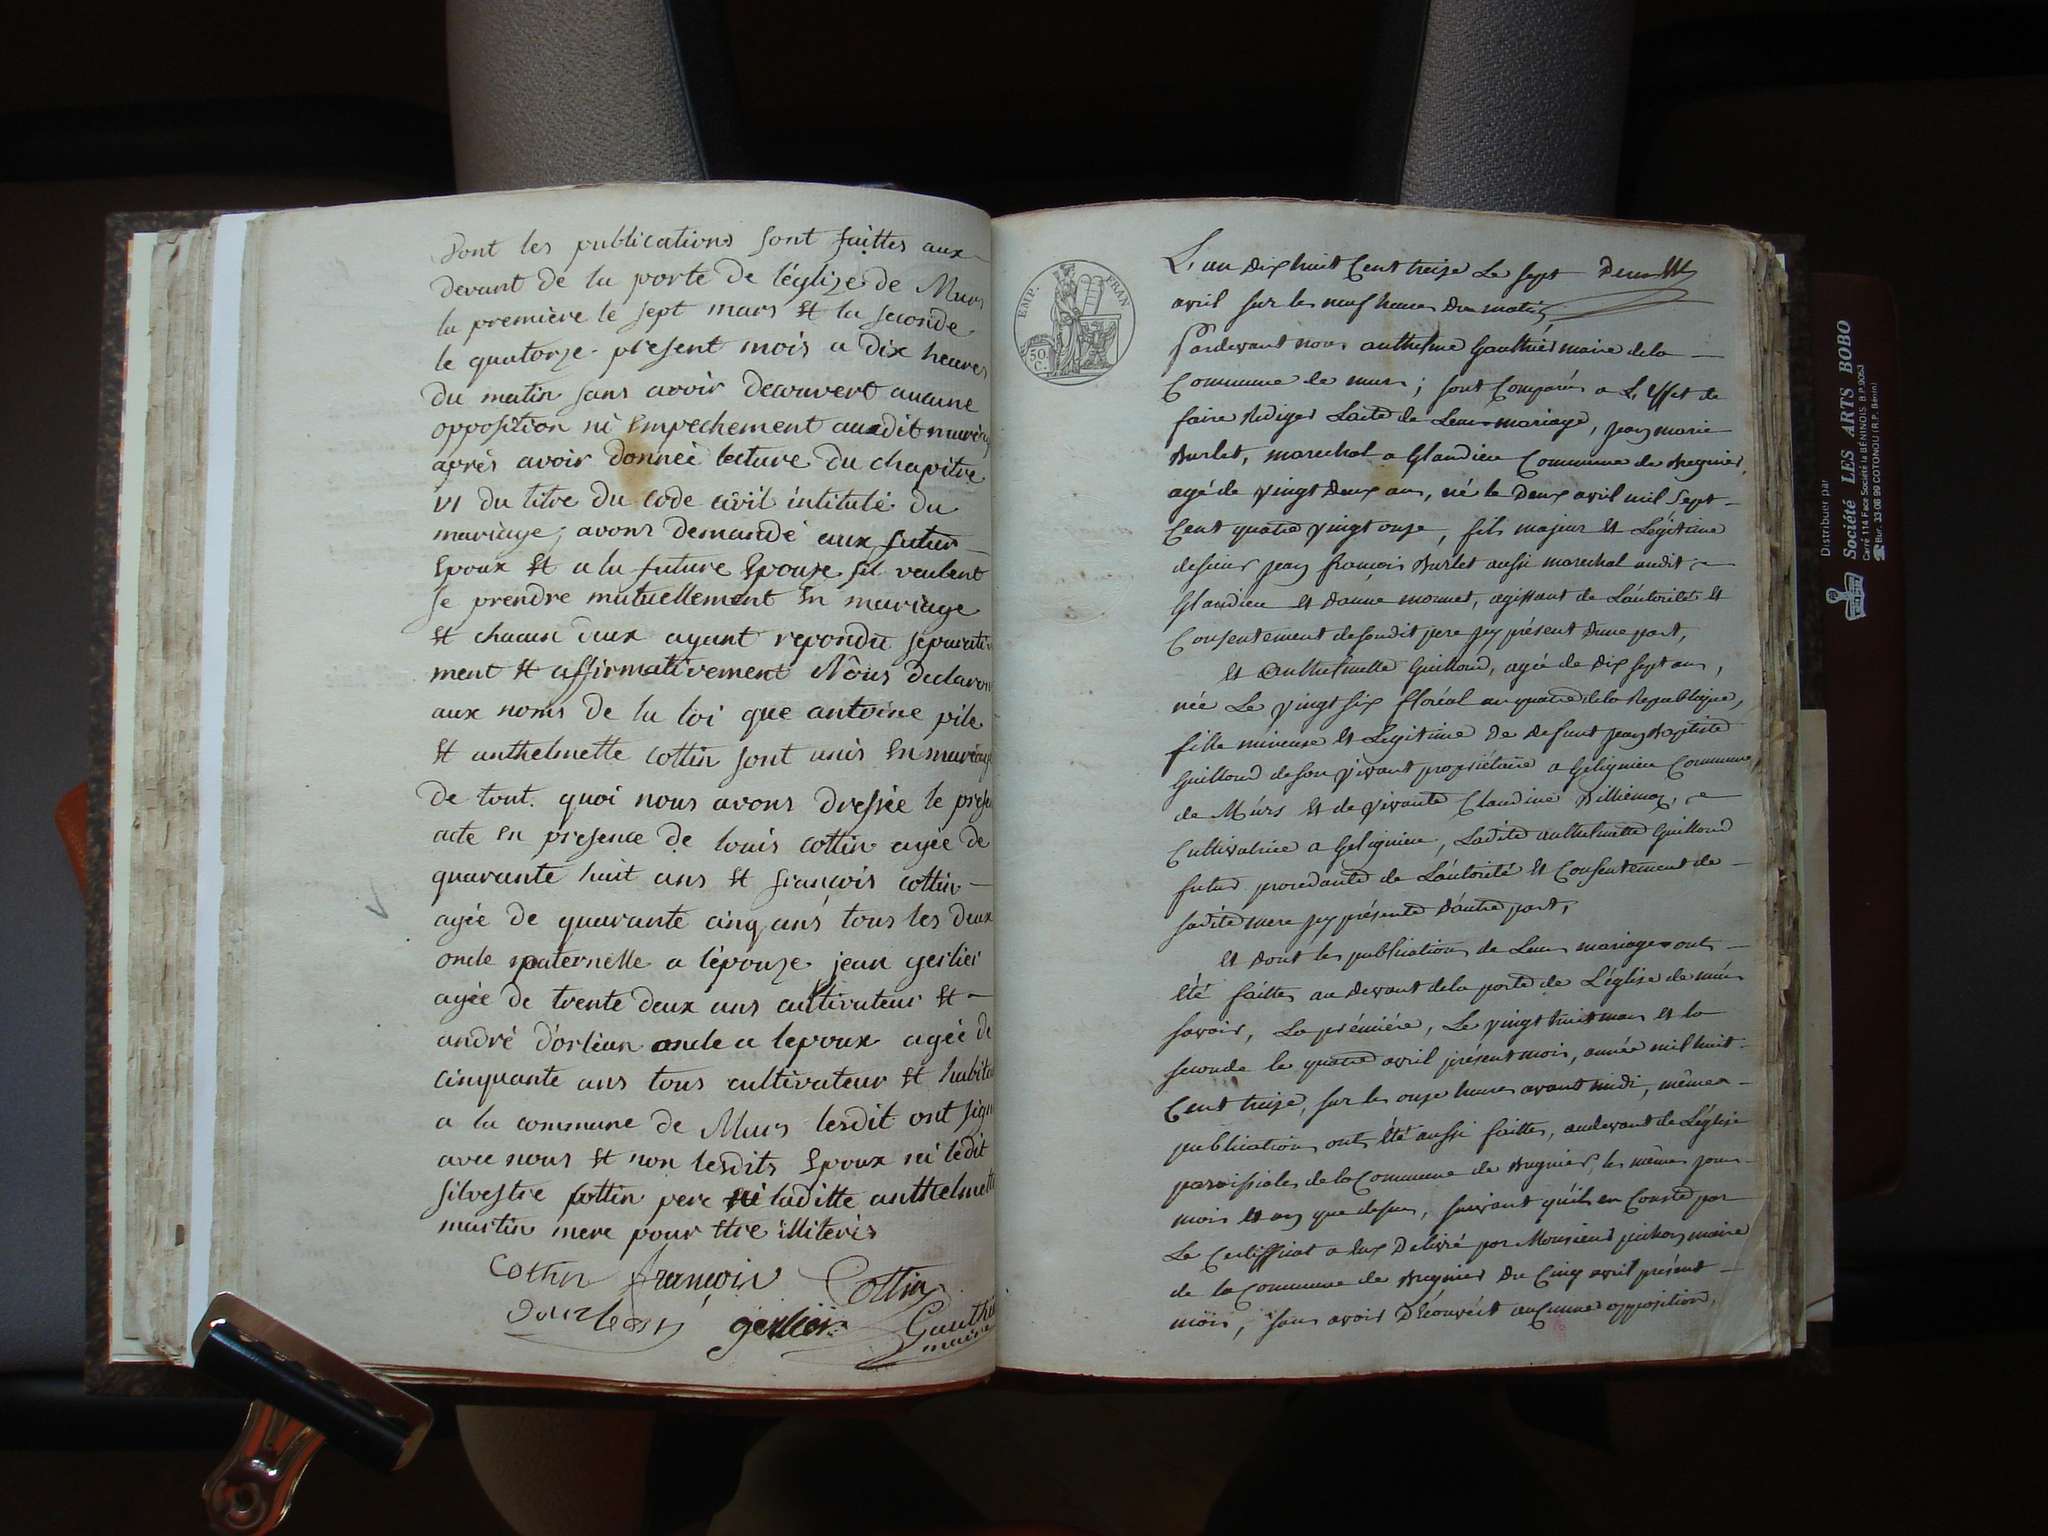 Dont les publications sont faittes aux
devant de la porte de léglize de Murs
la première le sept mars Et la seconde
le quatorze présent mois a dix heures
du matin sans avoir decouvert aucune
opposition ni Empechement audit mariag
après avoir donnée lecture du chapitre
VI du titre du code civil intitulé du
mariage, avons demandé aux futur
Epoux Et a la future Epouze sil veulent
se prendre mutuellement En mariage
Et chacun deux ayant repondu séparati
ment Et affirmativement Nous declarons
aux noms de la loi que antoine pile
Et anthelmette Cottin sont unis En mariag
De tout quoi nous avons dressée le prese
acte En presence de louis cottin agée de
quarante huit ans Et françois cottin
agée de quarante cinq ans tous les deux
oncle paternelle a lépouze jean gerlier
agée de trente deux ans cultivateur Et
andré dorléan oncle a lepoux agée de
cinquante ans tous cultivateur Et habita
a la commune de Murs lesdit ont sign
avec nous Et non lesdits Epoux ni ledit
silvestre Cottin pere ni laditte anthelmette
martin mere pour Etre illiteris
Cottin françois Cottin
gerlier Gauthie
maire
EMP. FRAN
50 C.
L'an dix huit Cent treize Le sept
avril sur les neuf heures Du matin
Pardevant nous anthelme Gauthier maire de la
Commune de murs ; sont Comparus a L'Effet de
faire Rediger Lacte de Leur mariage, jean marie
Burlet, marechal a Glandieu Commune de Bregnier,
agé de vingt Deux ans, né le Deux avril mil Sept
Cent quatre vingt onze, fils majeur Et Légitime
de sieur jean françois Burlet aussi marechal audit
Glandieu Et Danne monnet, agissant de L'autorité Et
Consentement de sondit pere jcy présent Dune part,
Et Anthelmette Guilloud, agée de Dix sept ans,
née Le vingt six floréal an quatre de la Republique,
fille mineure Et Legitime De Defunt jean Baptiste
Guilloud de son vivant propriétaire a Gelignieu Commune
de Mürs Et de vivante Claudine Billiemaz,
Cultivatrice a Gelignieu, Ladite anthelmette Guilloud
future procedante de L'autorité Et Consentement de
sadite mere jcy présente D'autre part,
Et Dont les publications de Leur mariage ont
Eté faittes au Devant de la porte de L'église de mürs
savoir, La prémière, Le vingt huit mars Et la
seconde le quatre avril présent mois, année mil huit
Cent treize, sur les onze heures avant midi, mêmes
publications ont Eté aussi faittes, au devant de L'église
paroissiale de la Commune de Bregnier, les mêmes jours
mois Et an que dessus, suivant qu'il en Conste par
Le Certifficat a Eux Delivré par Monsieur maire
de la Commune de Bregnier Du Cinq avril présent
mois, sans avoir Découvert aucunnes opposition,
Distribuer par
Société LES ARTS BOBO
Carré 114 Face Société la BÉNINOIS B.P.9053
Bur. 33 06 99 COTONOU (R.P. Bénin)